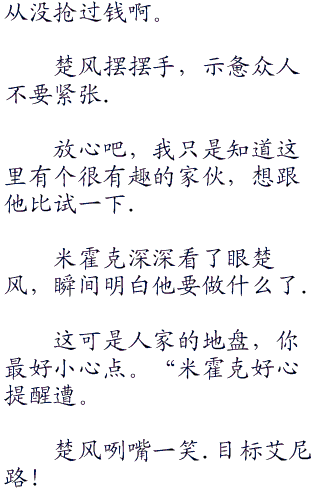 从没抢过钱啊。
楚风摆摆手，示意众人
不要紧张.
放心吧，我只是知道这
里有个很有趣的家伙，想跟
他比试一下.
米霍克深深看了眼楚
风，瞬间明白他要做什么了.
这可是人家的地盘，你
最好小心点。“米霍克好心
提醒遭。
楚风咧嘴一笑.目标艾尼
路！